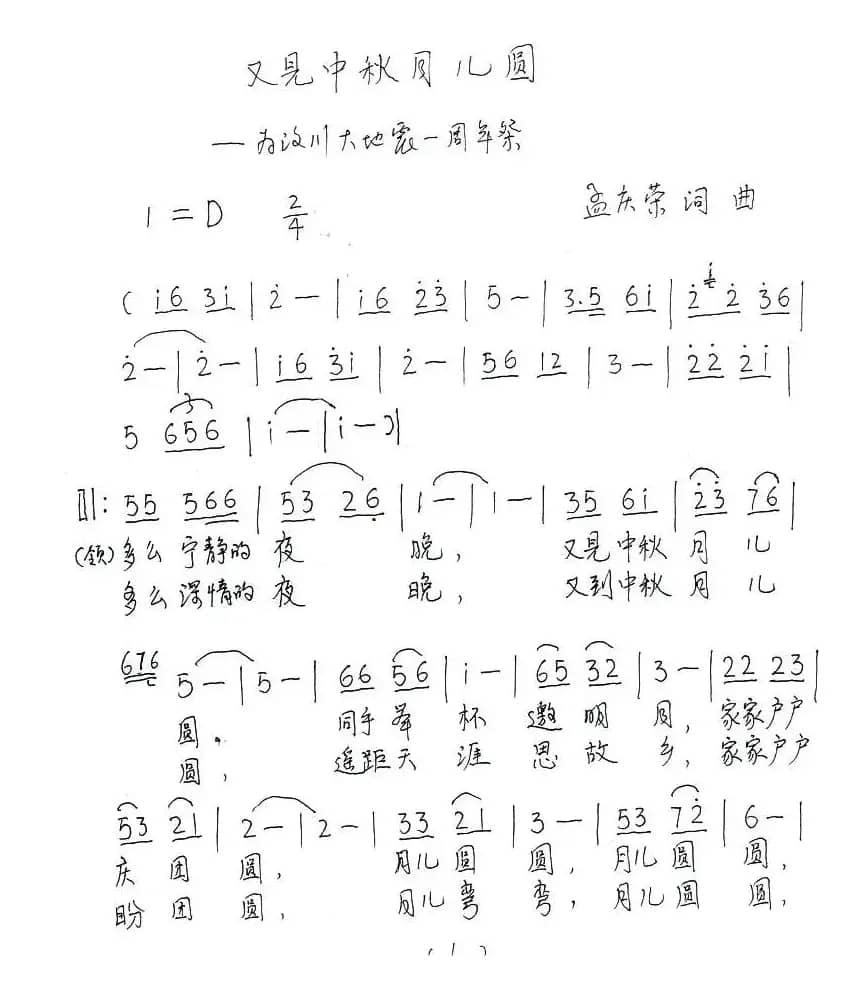 又见中秋月儿圆
—为汶川大地震一周年祭
1=D 2/4 孟庆荣 词 曲
( i6 3i | 2̇ — | i6 2̇3̇ | 5 — | 3.5 6i | 2̇ i 2̇ 3̇6 |
2̇ — | 2̇ — | i6 3̇i | 2̇ — | 56 12 | 3 — | 2̇2̇ 2̇i |
3
5 656 | i — | i — )|
‖: 55 566 | 53 26̣ | 1 — | 1 — | 35 6i | 2̇3̇ 76 |
(领) 多么 宁静的 夜 晚, 又见中秋 月 儿
多么 深情的 夜 晚, 又到中秋 月 儿
676 5 — | 5 — | 66 56 | i — | 65 32 | 3 — | 22 23 |
圆。 同手举 杯 邀 明 月, 家家户户
圆, 遥距天 涯 思 故 乡, 家家户户
53 21 | 2 — | 2 — | 33 21 | 3 — | 53 72̇ | 6 — |
庆 团 圆, 月儿圆 圆, 月儿圆 圆,
盼 团 圆, 月儿弯 弯, 月儿圆 圆,
(1)